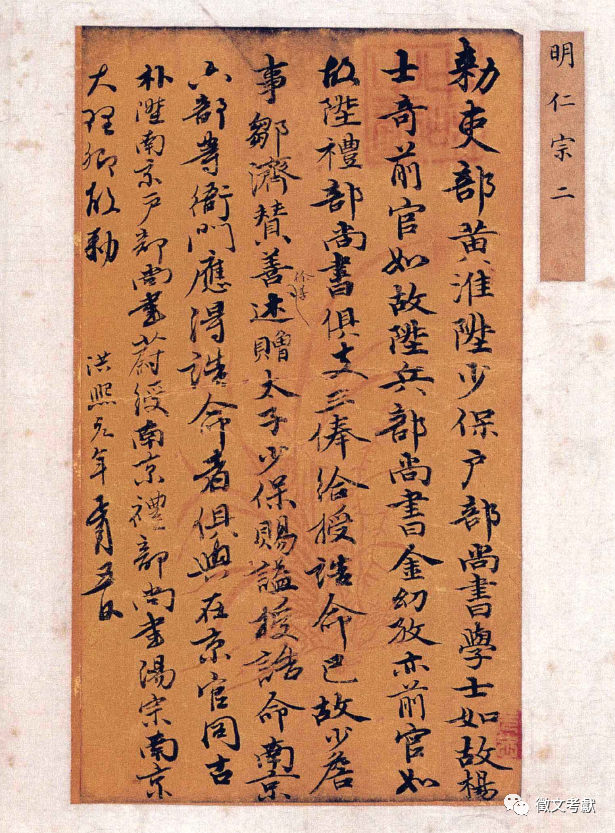 明仁宗二
勅吏部黃淮陞少保戶部尚書學士如故楊
士奇前官如故陞兵部尚書金幼孜亦前官如
故陞禮部尚書俱支三俸給授誥命已故少詹
事鄒濟贊善述贈太子少保賜謚授誥命南京
徐善
六部等衙門應得誥命者俱與在京官同古
朴陞南京戶部尚書蔚綬南京禮部尚書湯宗南京
大理卿故勅 洪熙元年正月五日
徵文考獻